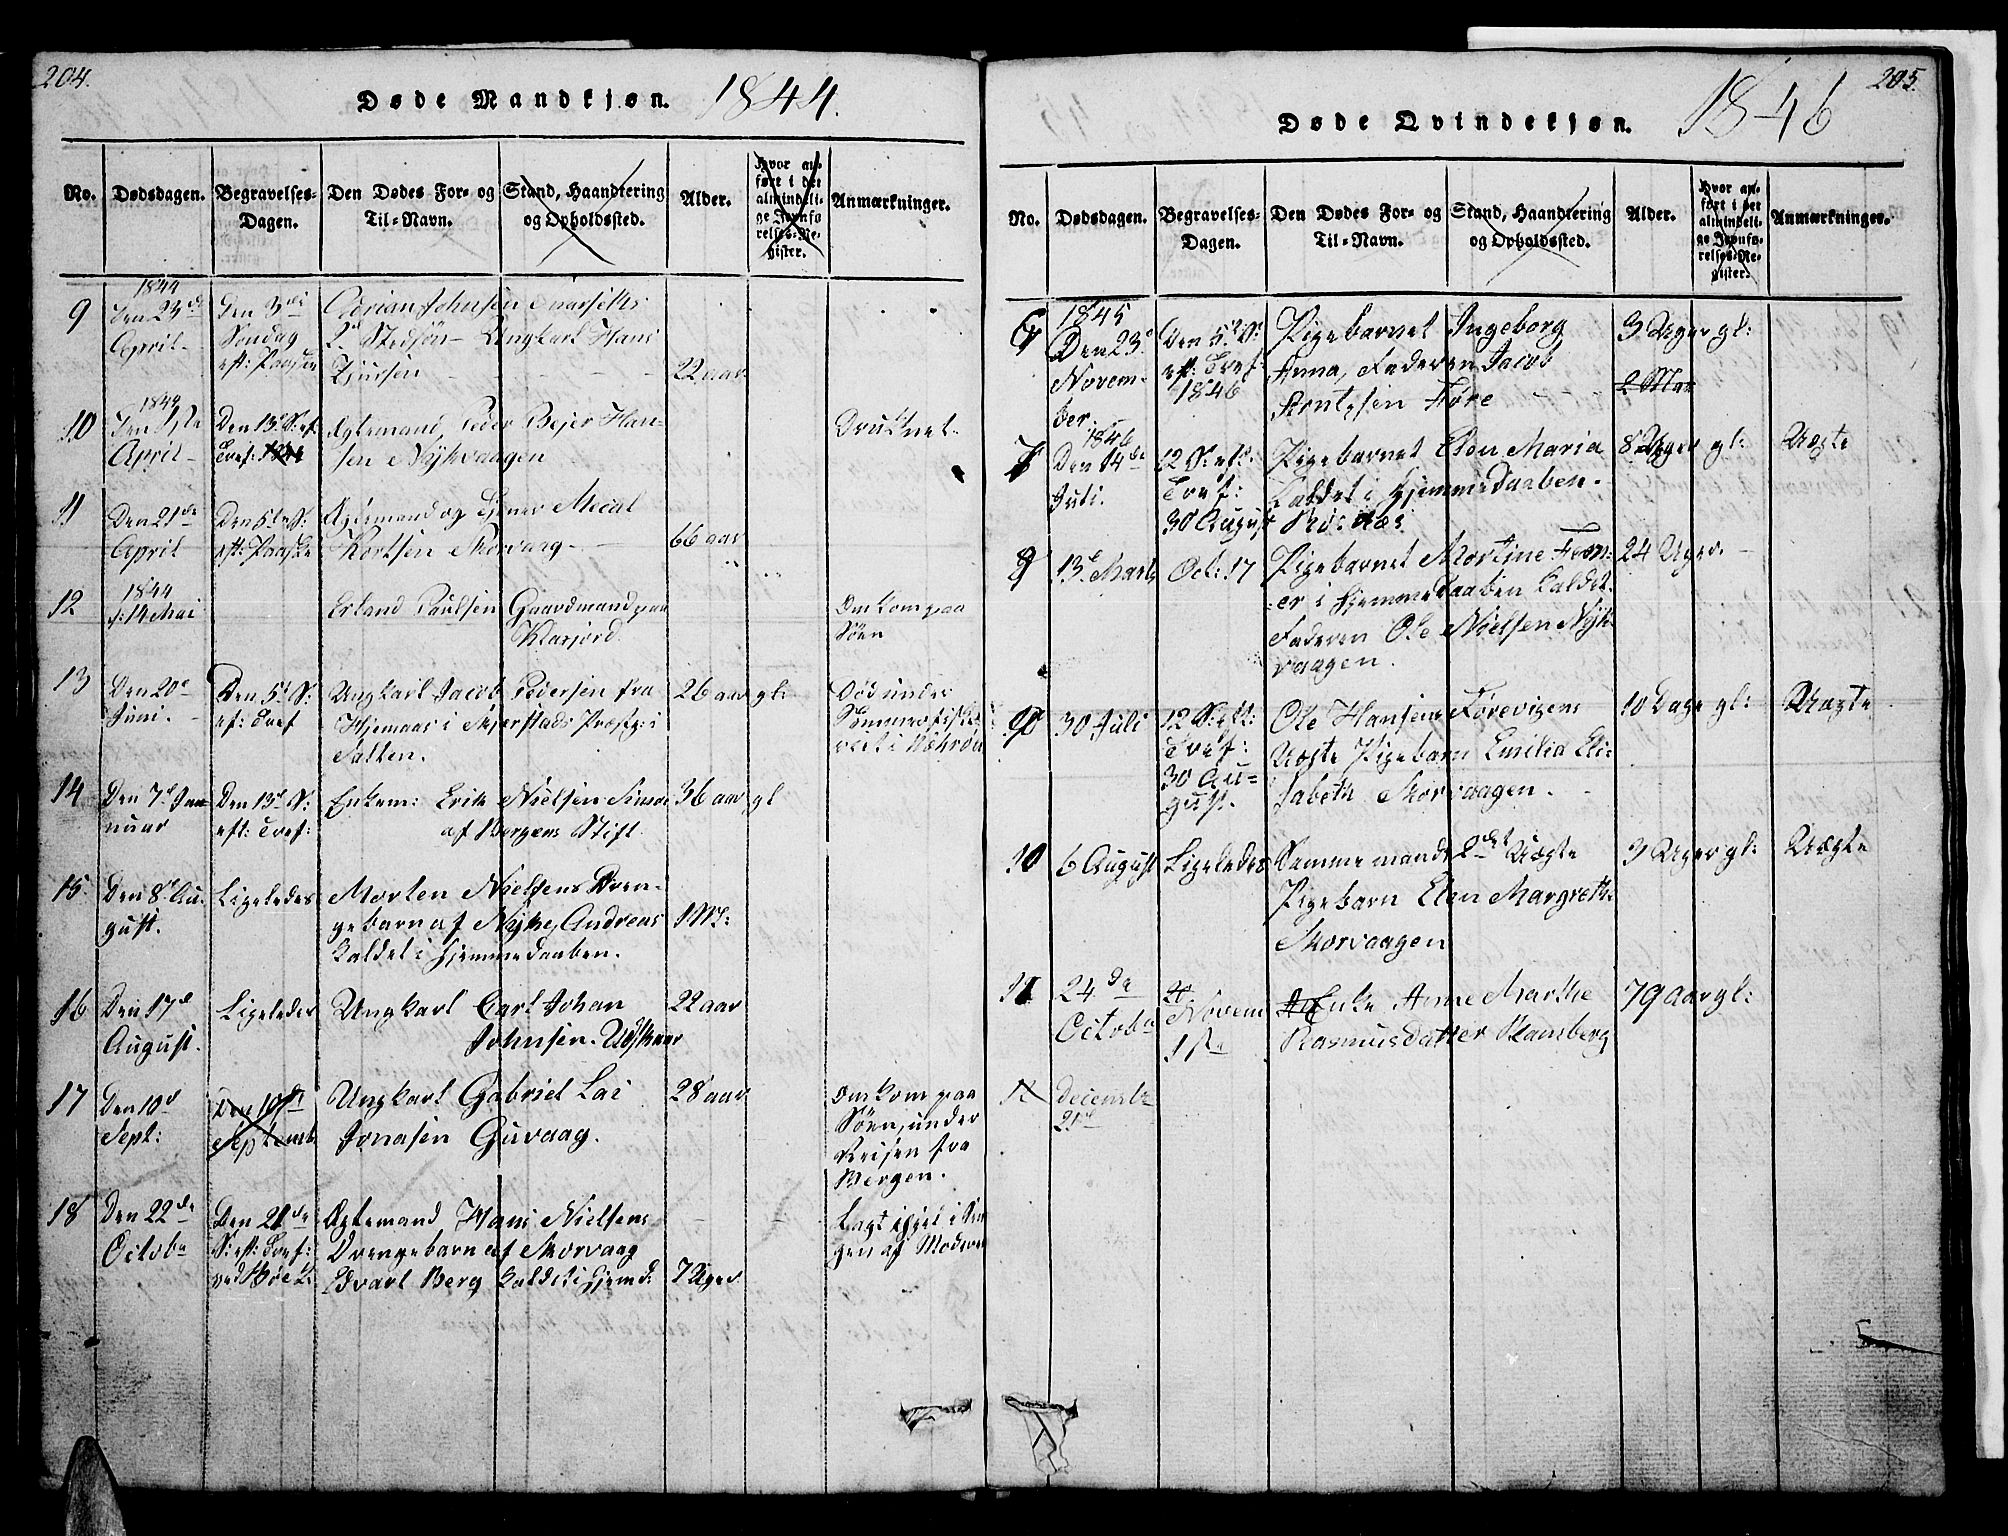 204.
Døde Mandkjøn. 1844.
No. Dødsdagen. Begravelses-Dagen. Den Dødes For- og Til-Navn. Stand, Haandtering og Opholdssted. Alder. Hvor anført i det almindelige Jevnførelses-Register. Anmærkninger.
9
1844
Den 23de
April
Den 3di
Søndag
eft: Paaske
Adrian Johnsen
Stedsøn Ungkarl Hans
22 aar
10
1844
April
Den 13de S: ef
Tref:
Ægtemand Peder Bejer Han-
sen Nykvaagen
Druknet
11
Den 21de
April
Den 5te S:
eft: Paaske
Kortsen Skorvaag
66 aar
12
1844
d: 14 Mai
Erland Paulsen Gaardmand paa
Klarjord
Omkom paa
Søen
13
Den 20de
Juni.
Den 5te S:
ef: Tref
Ungkarl Jacob Pedersen fra
i Skjerstads Præstg: i
Salten.
26 aar gl:
Død under
14
Den 7de Jan-
nuar
Den 13de S:
eft: Tref:
Enkem: Erik Nielsen
af Bergens Stift
36 aar gl
15
Den 8de Au-
gust.
Ligeledes
Morten Nielsens Dren-
gebarn af Nyke, Andreas
kaldet i Hjemmedaaben.
16
Den 17de
August.
Ligeledes
Ungkarl Carl Johan
Johnsen.
22 aar
17
Den 10de
Sept:
Den 10de
Septemb
Ungkarl Gabriel Lai
Jonasen Guvaag.
28 aar
Omkom paa
Søen, under
Reisen fra
Bergen.
18
Den 22de
Octobr
Den 21de
S: eft: Tref:
ved Bøe K:
Ægtemand Hans Nielsens
Drengebarn af Skorvaag
Edvart Berg kaldet i Hjemd:
7 Uger
Lagt ihjel i Sen
gen af Moderen
205.
Døde Qvindekjøn. 1846
No. Dødsdagen. Begravelses-Dagen. Den Dødes For- og Til-Navn. Stand, Haandtering og Opholdssted. Alder. Hvor anført i det almindelige Jevnførelses-Register. Anmærkninger.
6
1845
Den 23de
Novem-
ber.
Den 5te S:
ef: Tref:
1846
Pigebarnet Ingeborg
Anna, Faderen Jacob
Arntzsen Føre
3 Uger gl:
7
1846
Den 14de
Juli.
12 S: eft:
Tref:
30 August
Pigebarnet Elen Maria
kaldet i Hjemmedaaben.
8 Uger gl: Uægte
8
13de Marts
Oct: 17
Pigebarnet Martine
i Hjemmedaaben kaldet.
Faderen Ole Nielsen Nyk-
vaagen.
24 Uger
9
30 Juli
12 S: eft:
Tref:
30 Au-
gust.
Ole Hansens Førevigens
Uægte Pigebarn Emilia Eli-
sabeth Skorvaagen.
10 Dage gl: Uægte
10
6 August
Ligeledes
Samme mands 2det Uægte
Pigebarn Elen Margreth
Skorvaagen
3 Uger gl: Uægte
11
24de
Octobr
Novem
1ste
Enke Anne Marthe
Rasmusdatter Ramberg
79 Aar gl:
12
Decembr
21de